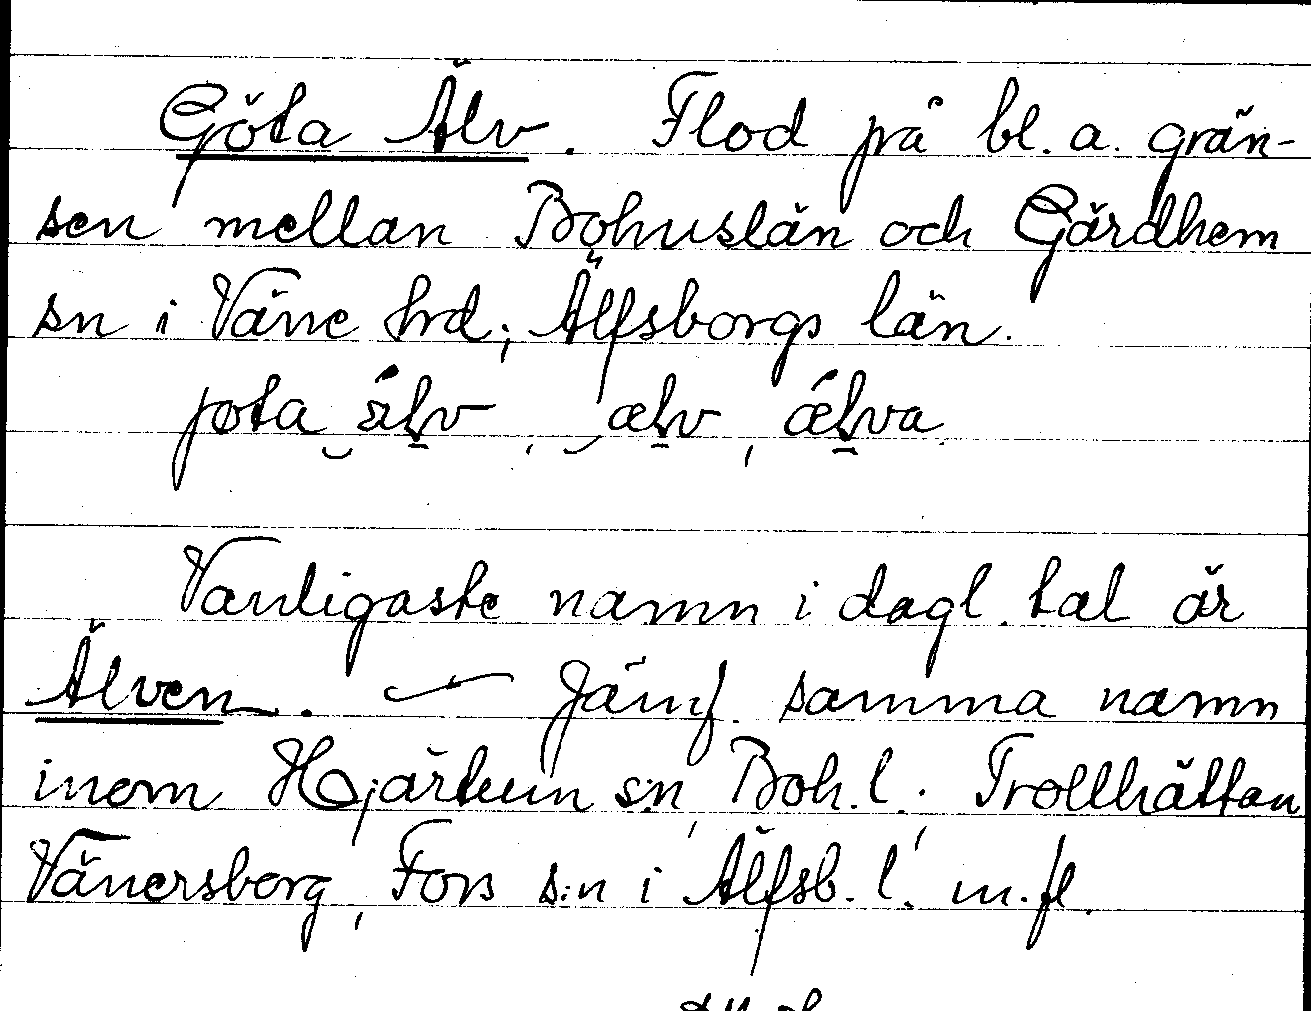 Göta Älv. Flod på bl. a. grän-
sen mellan Bohuslän och Gärdhem
sn i Väne hrd; Älfsborgs län.
jøta ǽlv, ælv, ǽlva
Vanligaste namn i dagl. tal är
Älven. — Jämf. samma namn
inom Hjärtum s:n, Boh. l.; Trollhättan
Vänersborg, Fors s:n i Älfsb. l. m. fl.